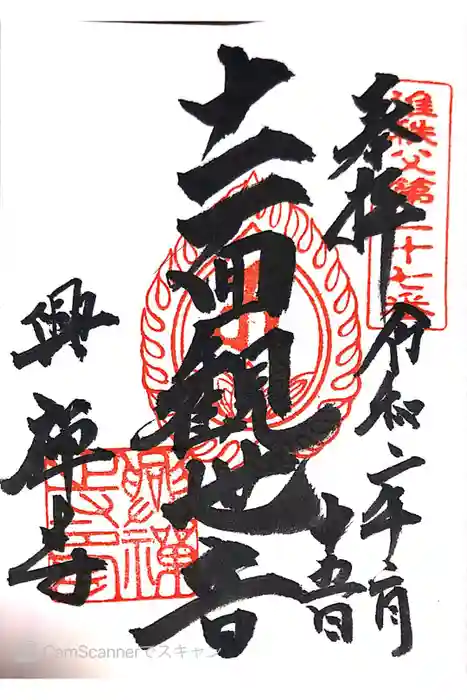 奉拝
准秩父第二十七番
令和二年二月
十五日
十一面観世音
興禅寺
興禅寺印
CamScannerでスキャン